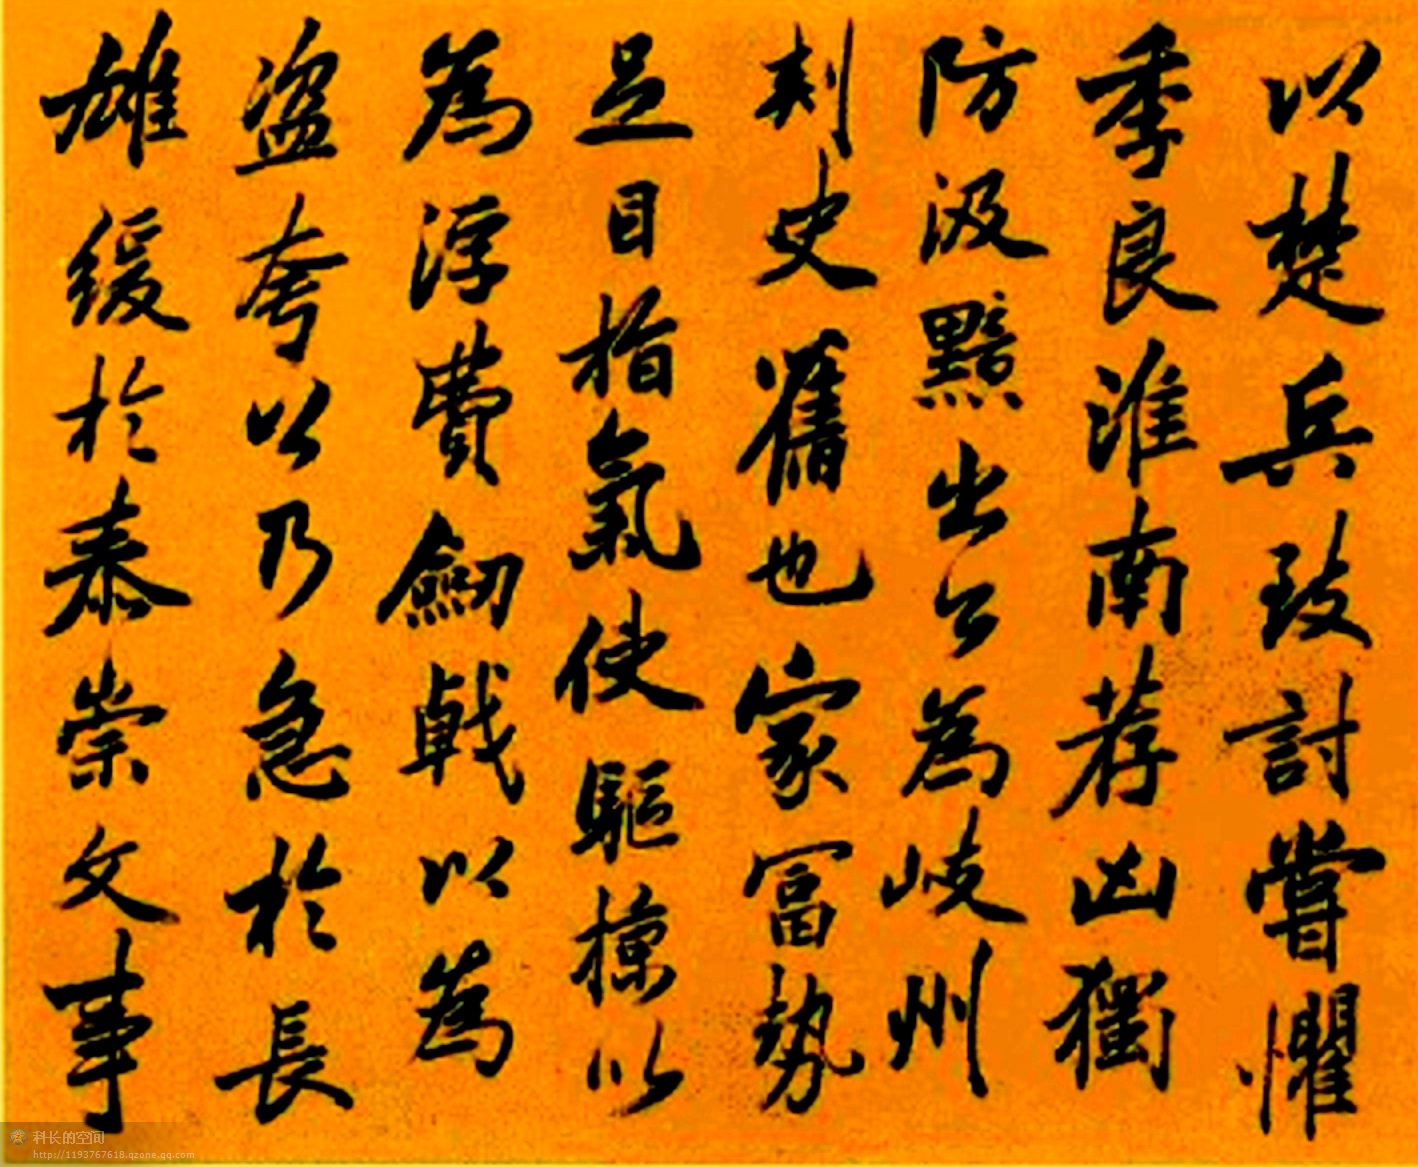 以楚兵致討嘗懼
季良淮南荐凶獨
防汲黯出公為岐州
刺史舊也家富勢
足目指氣使驅掠以
為浮費劒戟以為
盜夸公乃急於長
雄緩於泰崇文事
科长的空间
http://1193767618.qzone.qq.com